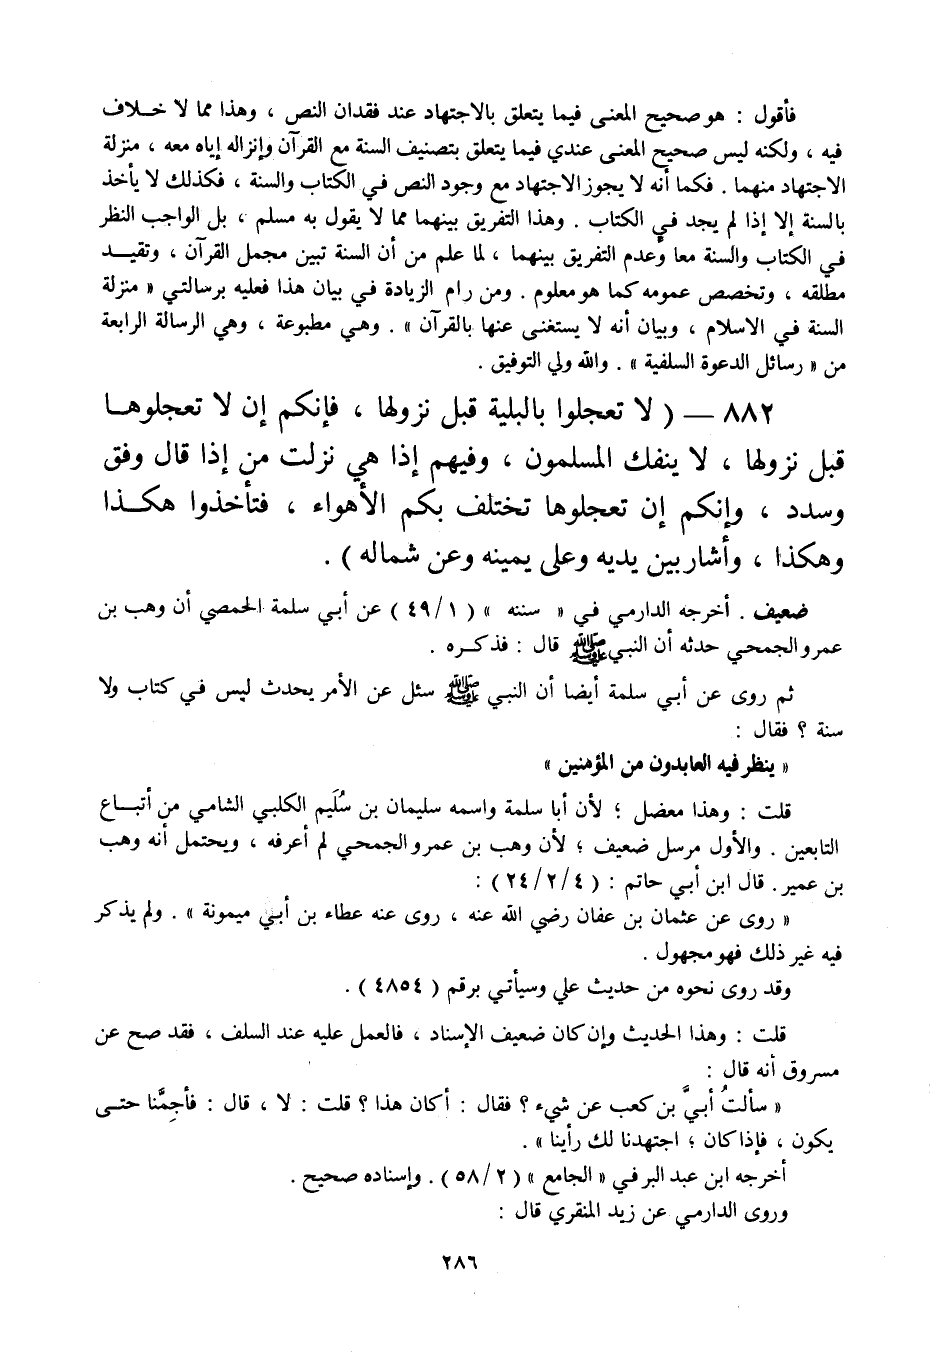 فأقول : هو صحيح المعنى فيما يتعلق بالاجتهاد عند فقدان النص ، وهذا مما لا خلاف
فيه ، ولكنه ليس صحيح المعنى عندي فيما يتعلق بتصنيف السنة مع القرآن وإنزاله إياه معه ، منزلة
الاجتهاد منهما . فكما أنه لا يجوز الاجتهاد مع وجود النص في الكتاب والسنة ، فكذلك لا يأخذ
بالسنة إلا إذا لم يجد في الكتاب . وهذا التفريق بينهما مما لا يقول به مسلم ، بل الواجب النظر
في الكتاب والسنة معا وعدم التفريق بينهما ، لما علم من أن السنة تبين مجمل القرآن ، وتقيد
مطلقه ، وتخصص عمومه كما هو معلوم . ومن رام الزيادة في بيان هذا فعليه برسالتي « منزلة
السنة في الاسلام ، وبيان أنه لا يستغنى عنها بالقرآن » . وهي مطبوعة ، وهي الرسالة الرابعة
من « رسائل الدعوة السلفية » . والله ولي التوفيق .
٨٨٢ – ( لا تعجلوا بالبلية قبل نزولها ، فإنكم إن لا تعجلوها
قبل نزولها ، لا ينفك المسلمون ، وفيهم إذا هي نزلت من إذا قال وفق
وسدد ، وإنكم إن تعجلوها تختلف بكم الأهواء ، فتأخذوا هكذا
وهكذا ، وأشار بين يديه وعلى يمينه وعن شماله ) .
ضعيف . أخرجه الدارمي في « سننه » ( ٤٩/١ ) عن أبي سلمة الحمصي أن وهب بن
عمرو الجمحي حدثه أن النبي ﷺ قال : فذكره .
ثم روى عن أبي سلمة أيضا أن النبي ﷺ سئل عن الأمر يحدث ليس في كتاب ولا
سنة ؟ فقال :
« ينظر فيه العابدون من المؤمنين »
قلت : وهذا معضل ؛ لأن أبا سلمة واسمه سليمان بن سُلَيم الكلبي الشامي من أتباع
التابعين . والأول مرسل ضعيف ؛ لأن وهب بن عمرو الجمحي لم أعرفه ، ويحتمل أنه وهب
بن عمير . قال ابن أبي حاتم : ( ٢٤/٢/٤ ) :
« روى عن عثمان بن عفان رضي الله عنه ، روى عنه عطاء بن أبي ميمونة » . ولم يذكر
فيه غير ذلك فهو مجهول .
وقد روى نحوه من حديث علي وسيأتي برقم ( ٤٨٥٤ ) .
قلت : وهذا الحديث وإن كان ضعيف الإسناد ، فالعمل عليه عند السلف ، فقد صح عن
مسروق أنه قال :
« سألتُ أبيَّ بن كعب عن شيء ؟ فقال : أكان هذا ؟ قلت : لا ، قال : فأجِمَّنا حتى
يكون ، فإذا كان ؛ اجتهدنا لك رأينا » .
أخرجه ابن عبد البر في « الجامع » ( ٥٨/٢ ) . وإسناده صحيح .
وروى الدارمي عن زيد المنقري قال :
٢٨٦